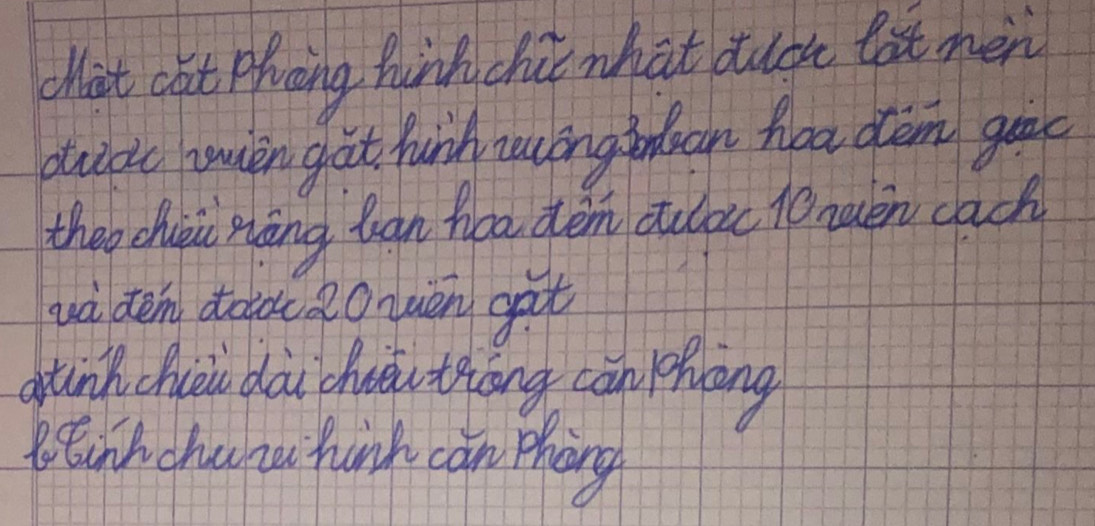 Một căt phòng hình chữ nhật được lát nền
được viên gặt hình vuông bạn hoa đếm gạc
theo chiều rộng bạn hoa đếm được 10 viên cạch
và đếm được 20 viên gặt
a tính chiều dài chiều trộng căn phòng
b Tính chu vi hình căn phòng